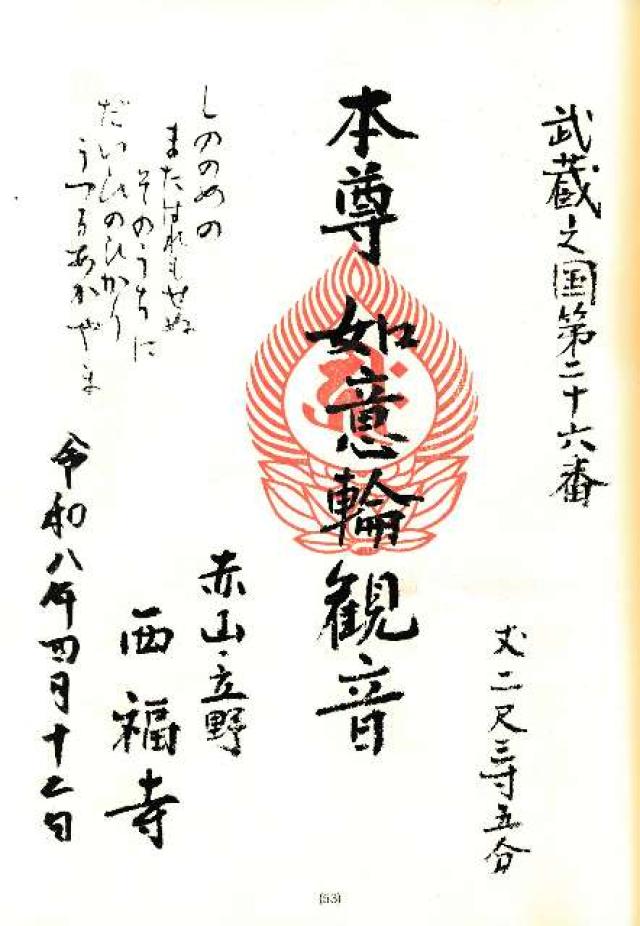 武蔵之国第二十六番
丈二尺三寸五分
本尊 如意輪観音
しののめの
またはれもせぬ
そのうちに
だいひのひかり
うつるあかやま
赤山・立野
西福寺
令和八年四月十二日
(53)